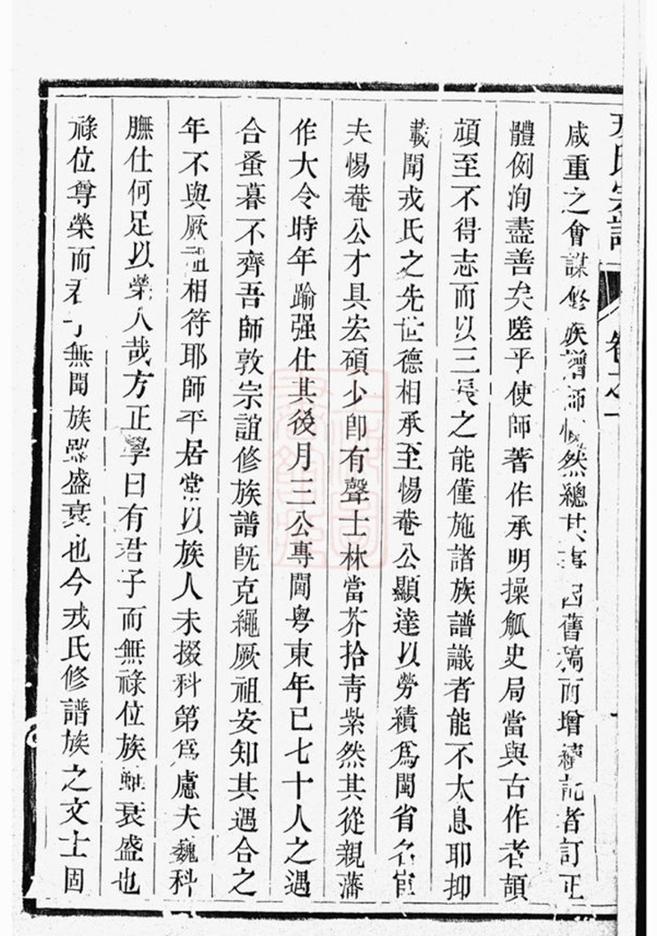 咸重之會謀修族譜師慨然總其事因舊稿而增續記者訂正
體例洵盡善矣嗟乎使師著作承明操觚史局當與古作者頡
頏至不得志而以三長之能僅施諸族譜識者能不太息耶抑
載聞戎氏之先世德相承至惕菴公顯達以勞績為閩省名宦
夫惕菴公才具宏碩少即有聲士林當芥拾青紫然其從親藩
作大令時年踰强仕其後月三公專閫粤東年已七十人之遇
合蚤暮不齊吾師敦宗誼修族譜旣克繩厥祖安知其遇合之
年不與厥祖相符耶師平居常以族人未掇科第為慮夫巍科
膴仕何足以榮人哉方正學曰有君子而無祿位族雖衰盛也
祿位尊榮而君子無聞族雖盛衰也今戎氏修譜族之文士固
戎氏宗譜 卷之一